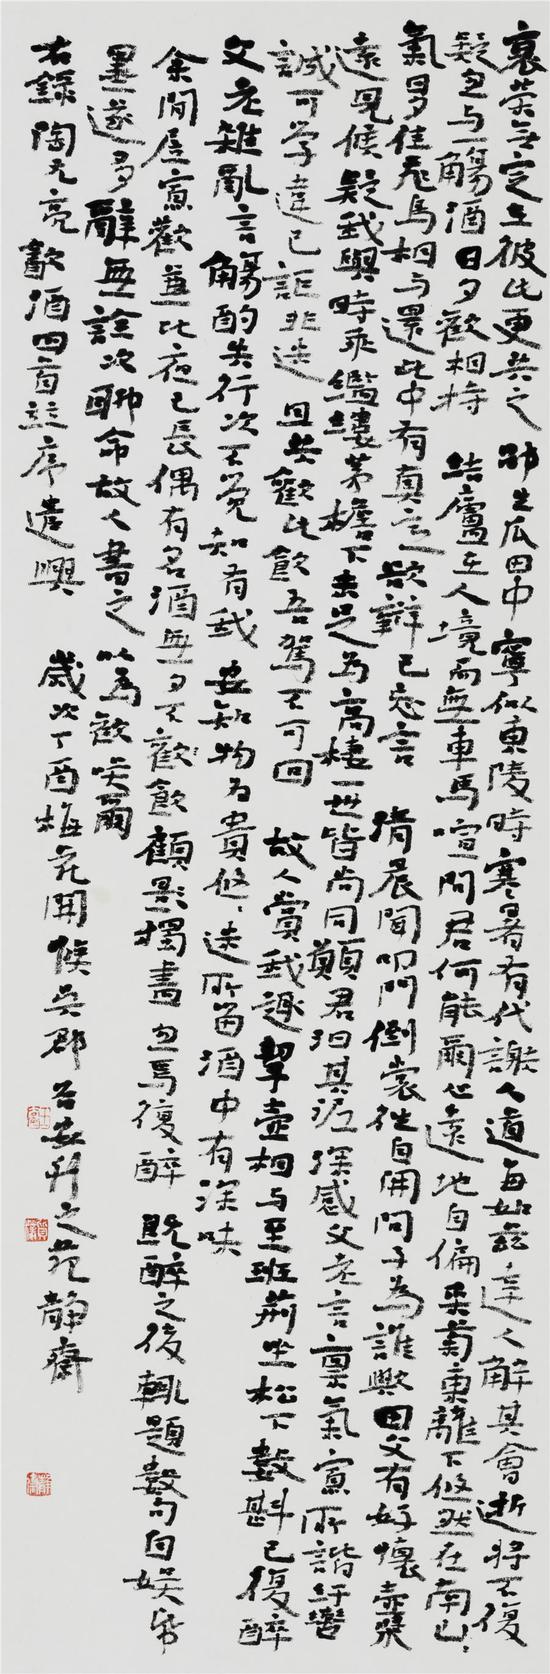 衰荣無定在彼此更共之 邵生瓜田中寧似東陵時寒暑有代謝人道每如兹達人解其會逝将不復
疑忽与一觴酒日夕歡相持 结廬在人境而無車馬喧问君何能爾心遠地自偏采菊東籬下悠然在南山〻
氣多佳飛鳥相与還此中有真意欲辯已忘言 清晨聞叩門倒裳往自開问子為誰歟田父有好懷壺漿
遠見候疑我與時乖繿縷茅檐下未足為高棲一世皆尚同願君汩其泥深感父老言稟氣寡所諧紆轡
誠可学違己詎非迷 且共歡此飲吾駕不可回 故人賞我趣挈壺相与至班荊坐松下數斟已復醉
父老雜亂言觴酌失行次不覺知有我 安知物為貴悠〻迷所留酒中有深味
余閒居寡歡兼比夜已長偶有名酒無夕不歡飲顧影獨盡忽焉復醉 既醉之後輒題數句自娱紙
墨遂多辭無詮次聊命故人書之以為歡笑爾
右錄陶元亮飲酒四首並序遣興 歲次丁酉梅花開候吳郡 之苑静齋